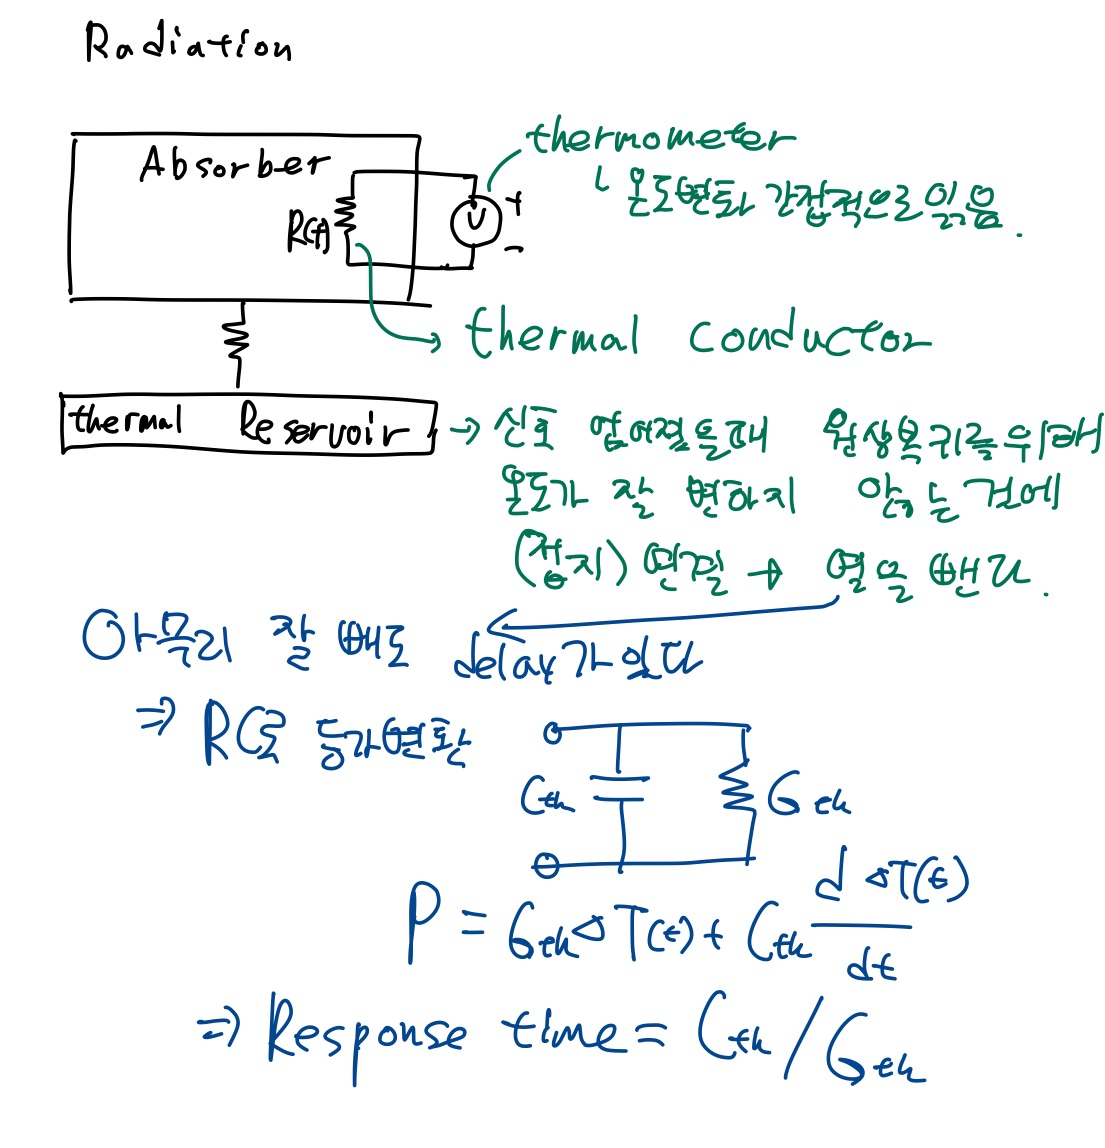 Radiation
thermometer
Absorber
온도변화 간접적으로 읽음.
R(T)
V
+
-
thermal conductor
thermal Reservoir → 신호 없어졌을때 원상복귀를위해
온도가 잘 변하지 않는것에
(접지) 연결 → 열을 뺀다.
아무리 잘 빼도 delay가 있다
⇒ RC로 등가변환
Cth
Gth
P = Gth ΔT(t) + Cth d ΔT(t) / dt
⇒ Response time = Cth / Gth